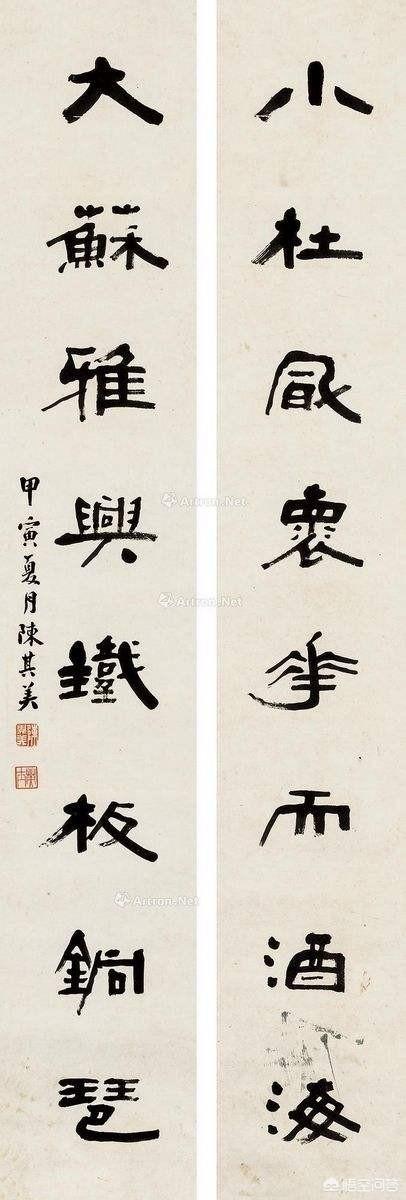 小杜褱華酒海
大蘇雅興鐵板銅琶
甲寅夏月陳其美
Artron.Net
Artron.Net
Artron.Net
Artron.Net
悟空问答